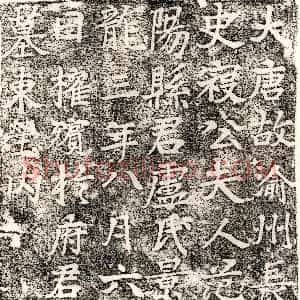 大唐故渝州長
史寇公夫人范
陽縣君盧氏景
龍三年八月六
日權殯扵府君
墓東塋内